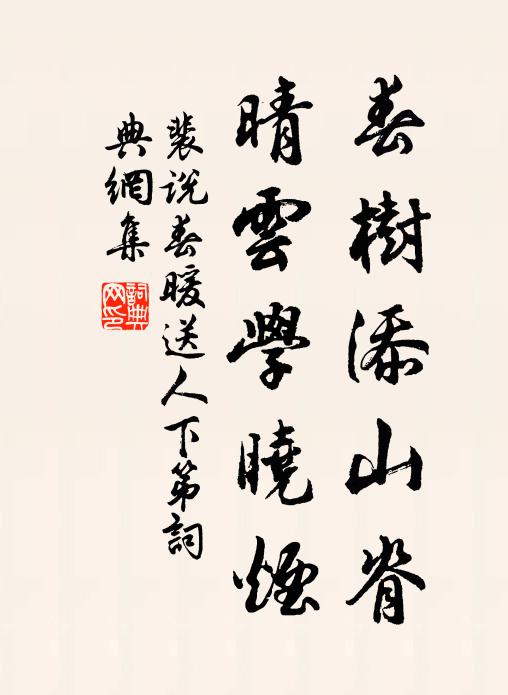 春樹添山脊
晴雲學曉煙
裴説春暖送人下第詞
典網集
詞典網印